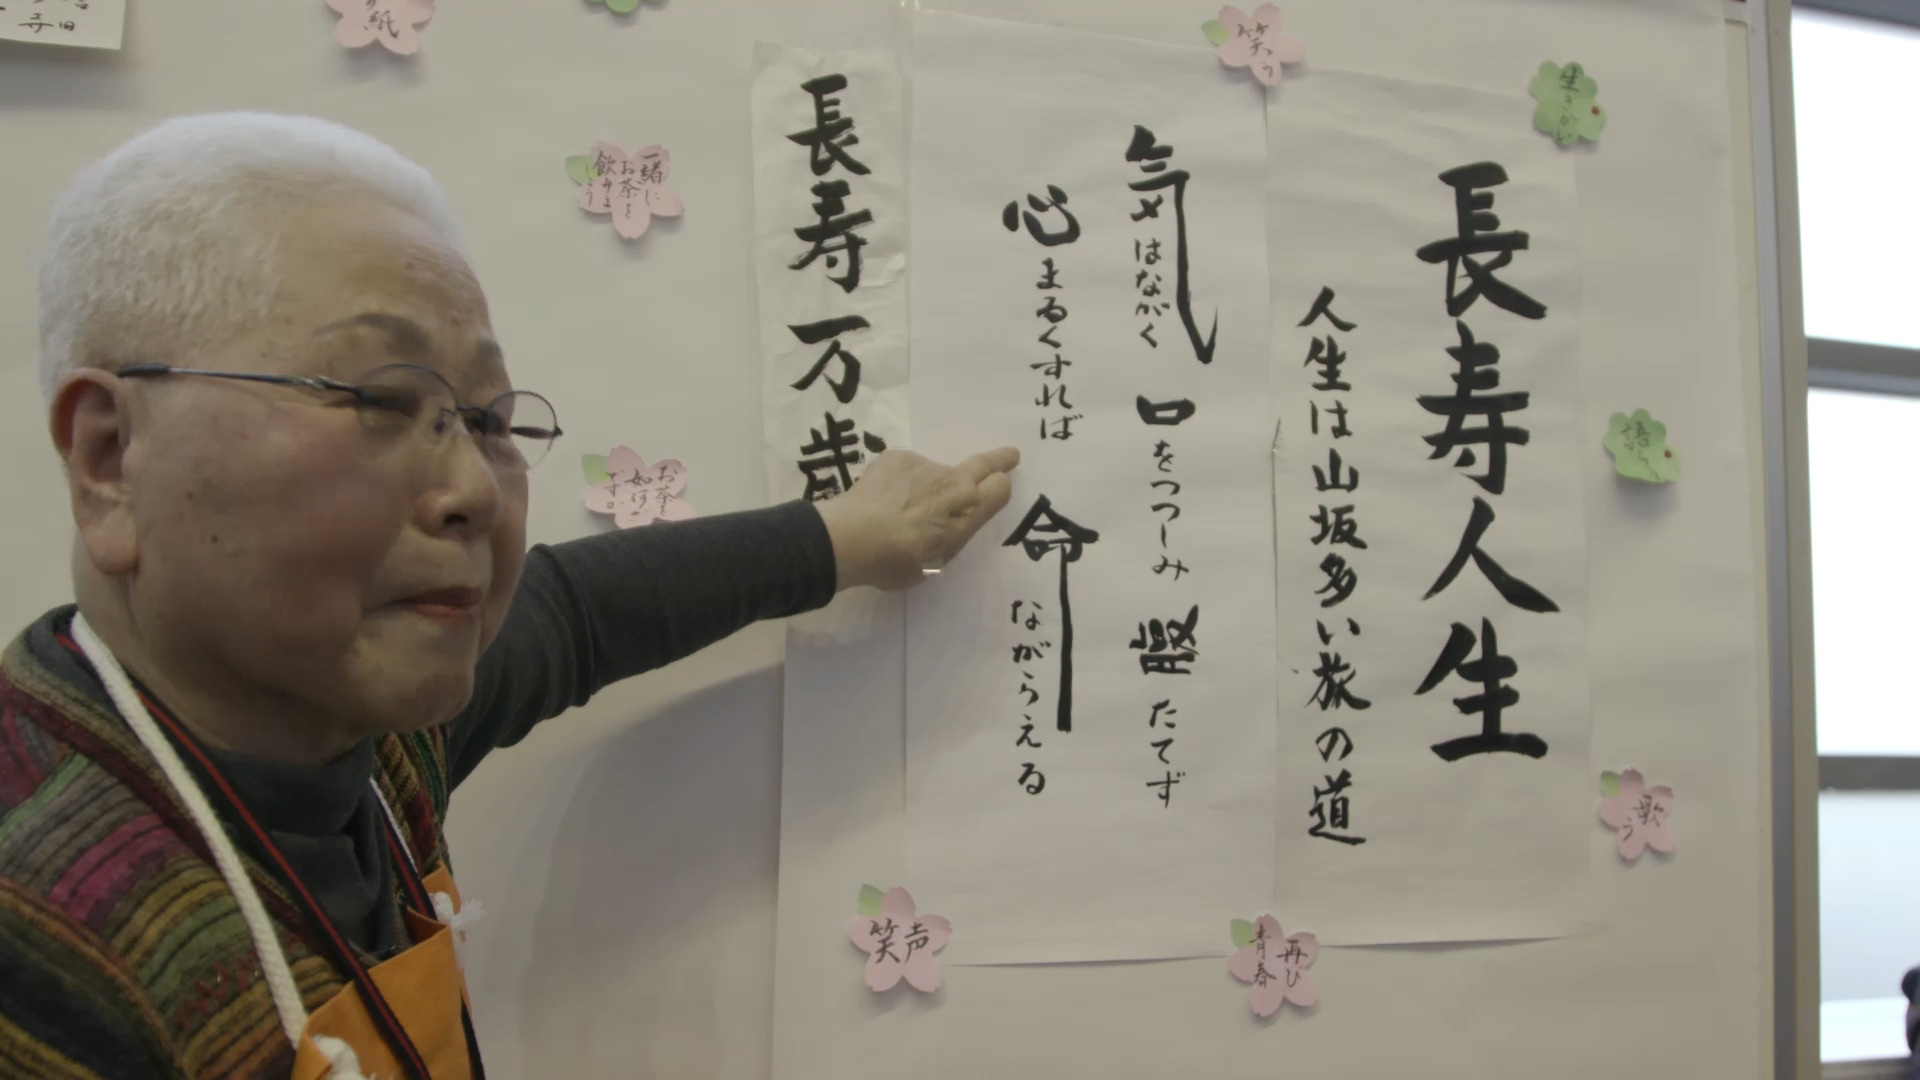 長寿人生
人生は山坂多い旅の道
気はながく 口をつつしみ 腹たてず
心まるくすれば 命ながらえる
長寿万歳
笑う
生きがい
語らい
歌う
再び
青春
笑声
一緒に
お茶を
飲みましょう
お茶を
如何
ですか
紙